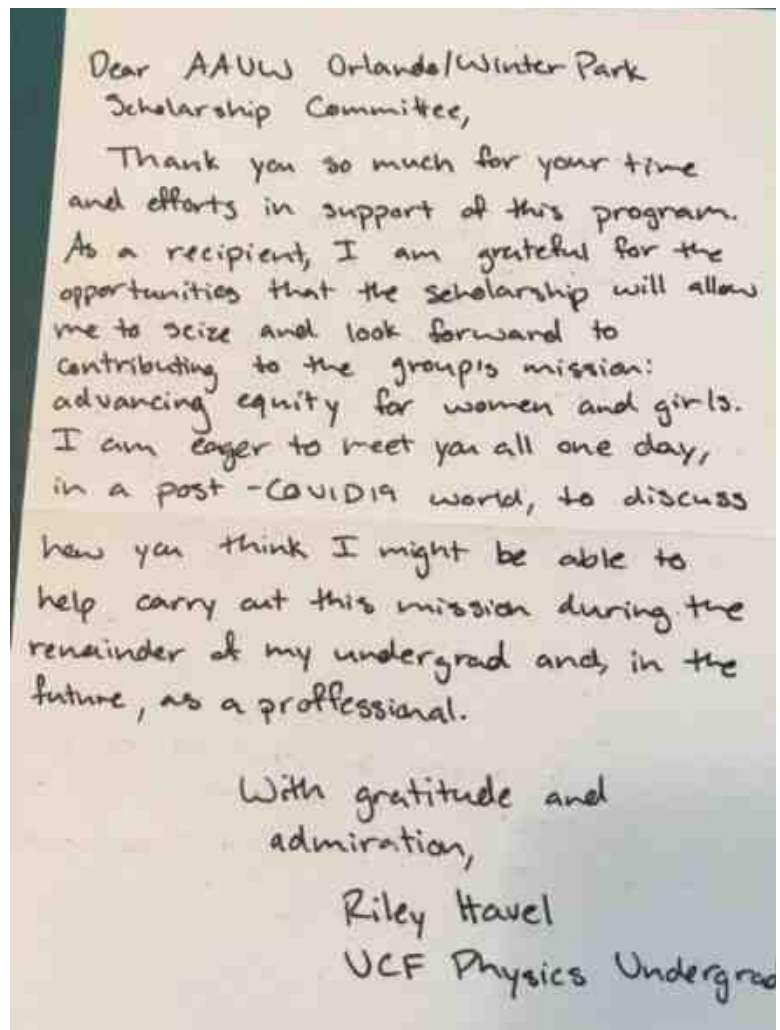 Dear AAUW Orlando/Winter Park
Scholarship Committee,
Thank you so much for your time
and efforts in support of this program.
As a recipient, I am grateful for the
opportunities that the scholarship will allow
me to seize and look forward to
contributing to the group's mission:
advancing equity for women and girls.
I am eager to meet you all one day,
in a post-COVID19 world, to discuss
how you think I might be able to
help carry out this mission during the
remainder of my undergrad and, in the
future, as a proffessional.
With gratitude and
admiration,
Riley Havel
UCF Physics Undergrad